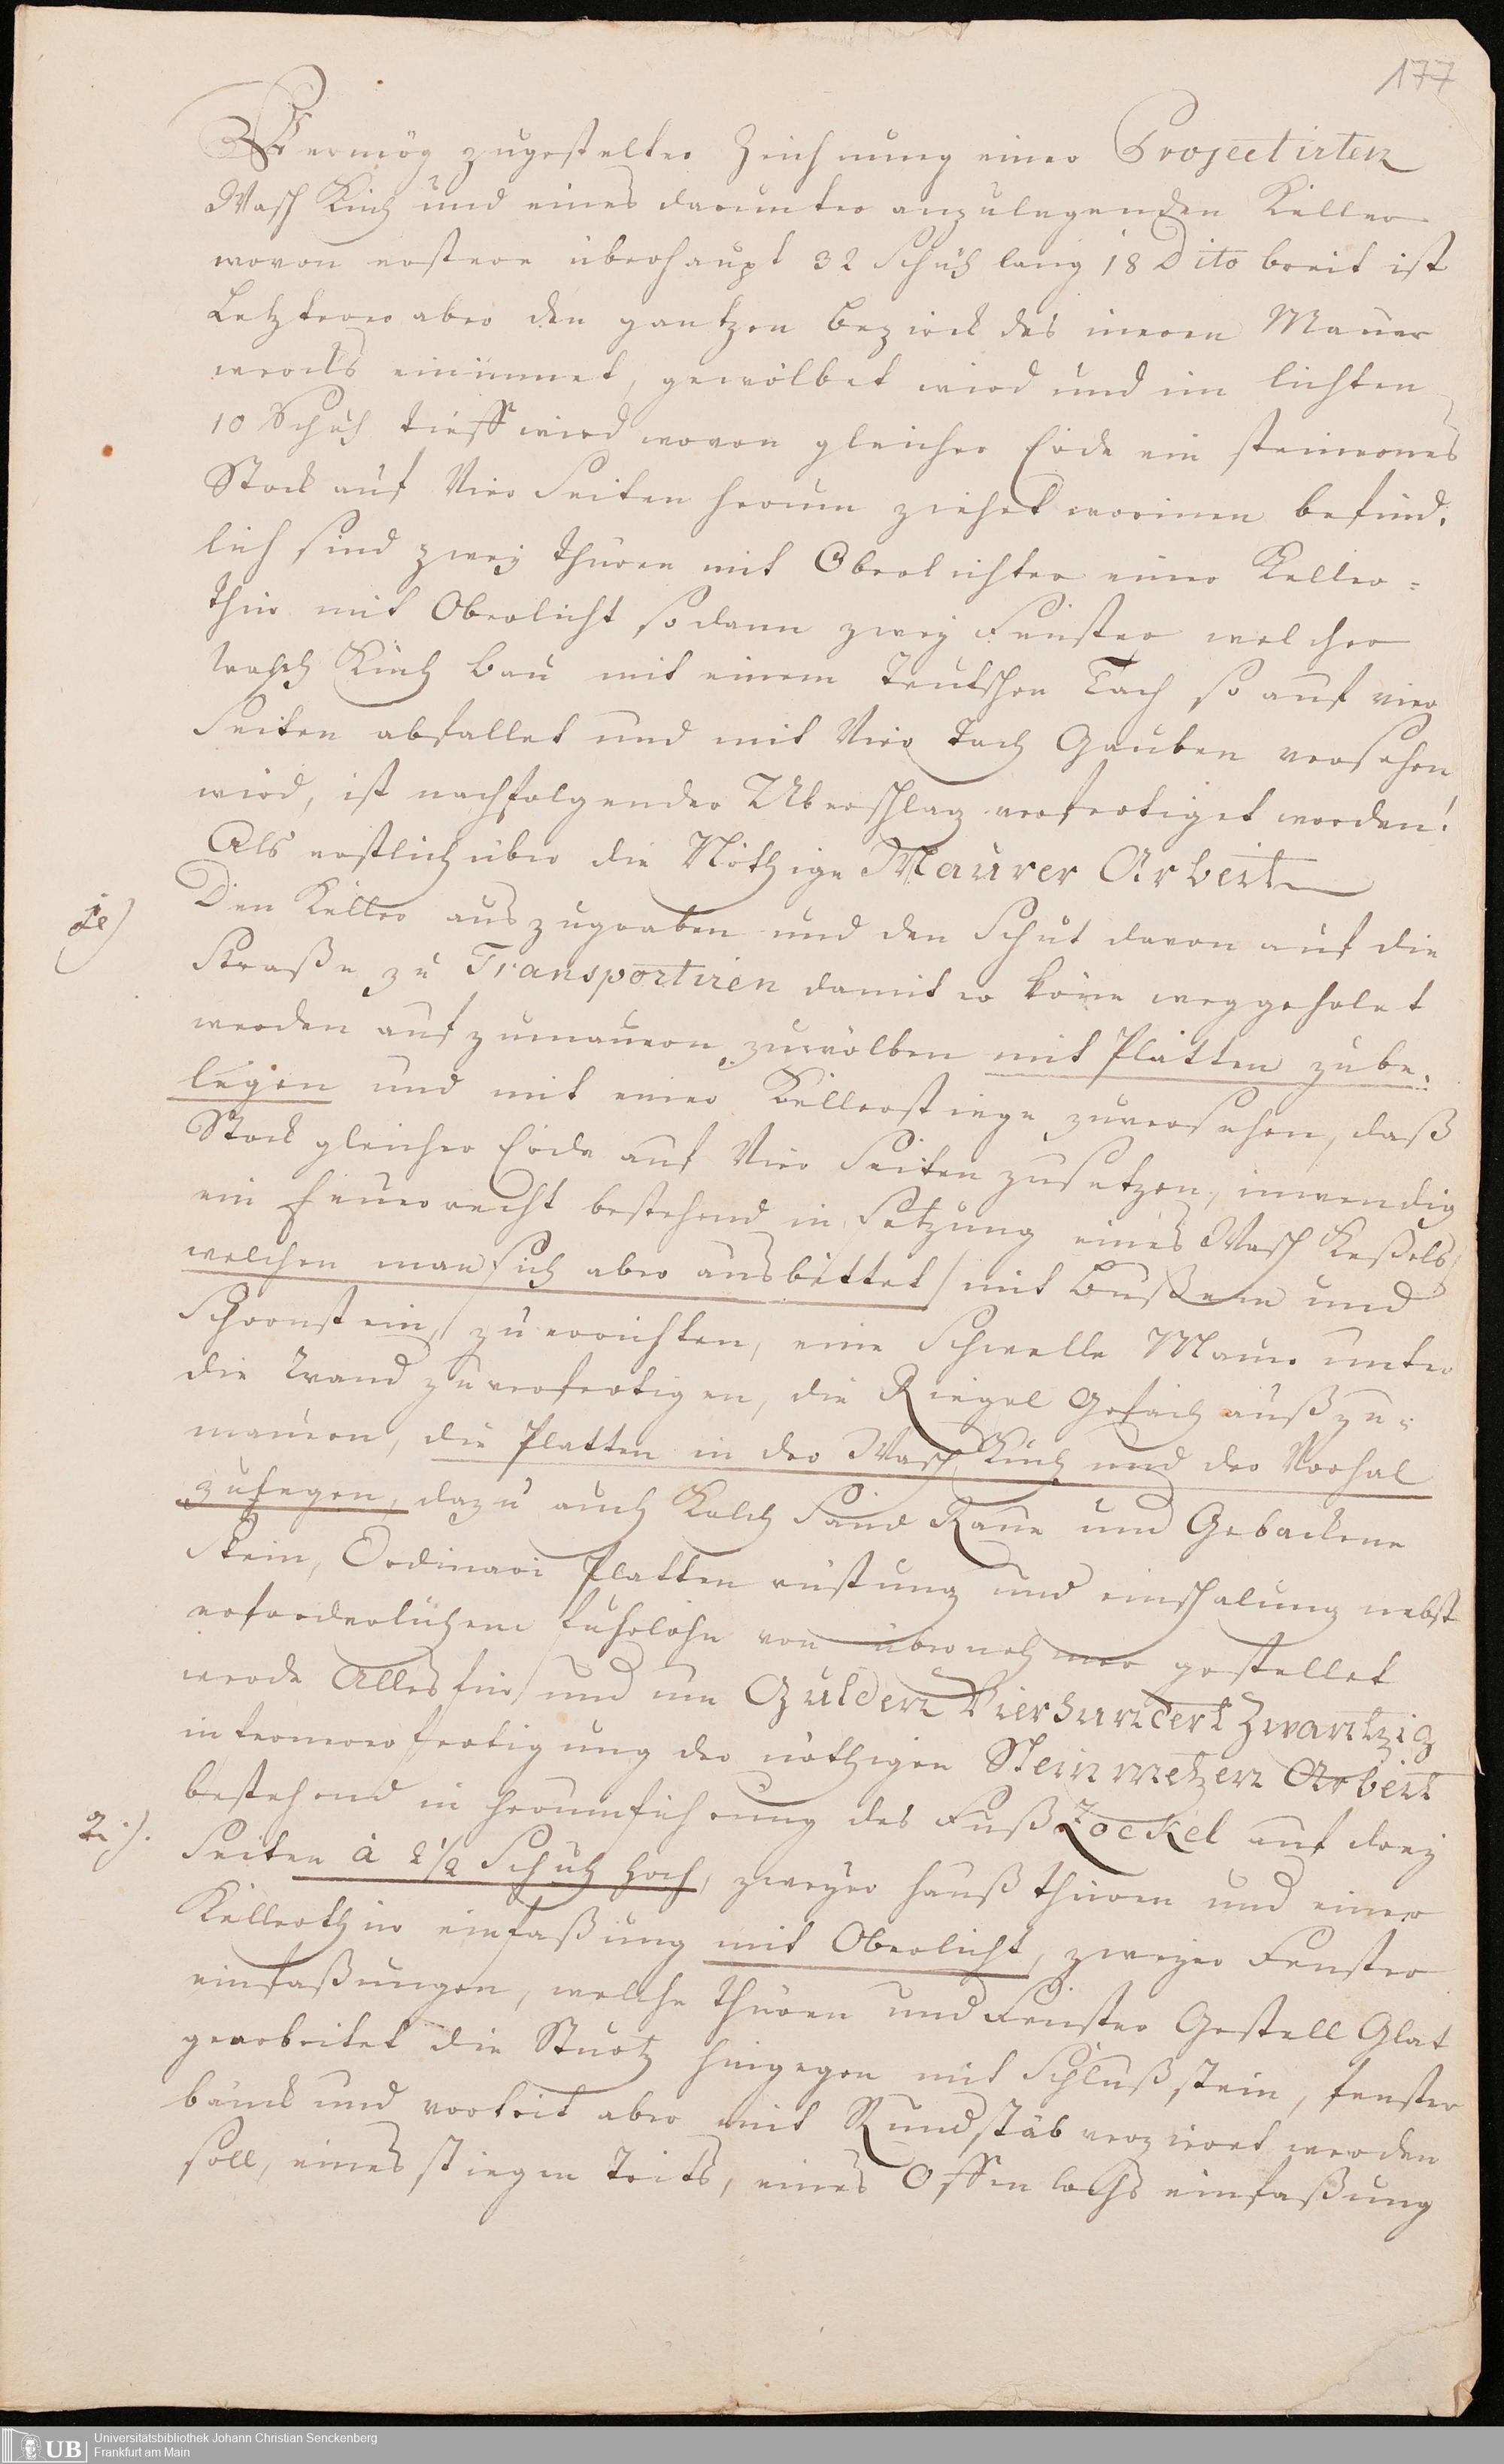 177
Vermög zugestelter Zeichnung einer Projectirten
Wasch Küch und eines darunter anzulegenden Keller
wovon erstere überhaupt 32 Schuh lang 18 Dito breit ist
Letzterer aber den gantzen Bezirck des ineren Mauer
wercks einimmet, gewölbet wird und im lichten
10 Schuh tieff wird wovon gleicher Erde ein steinernes
Stock auf Vier Seiten herum ziehet worinen befind,
lich sind zwey thüren mit Oberlichter einer Keller=
thür mit Oberlicht sodann zwey Fenster welcher
Wasch Küch Bau mit einem Teutschen Tach so auf vier
Seiten abfallet und mit Vier Tach Gauben versehen
wird, ist nachfolgender Uberschlag verfertiget worden!
Als erstlich über die Nöthige Maurer Arbeit
1e) Den Keller auszugraben und den Schut davon auf die
Straße zu Transportiren damit er köne weggeholet
werden aufzumauern zuwölben mit Platten zube,
legen und mit einer Kellerstiege zuversehen, daß
Stock gleicher Erde auf Vier Seiten zusetzen, inwendig
ein feuerrecht bestehend in Setzung eines Wasch Keßels/
welchen man sich aber ausbittet/ mit Bußem und
Schornstein,/ zu errichten, eine Schwelle Mauer unter
die Wand zuverfertigen, die Riegel Gefach außzu=
mauern, die Platten in der Wasch Küch und der Vorhal
zulegen, dazu auch Kalch Sand Raue und Gebackene
Stein, Ordinari Platten rüstung und einschalung nebst
erforderlichem fuhrlohn von übernehmer gestellet
werde Alles für und um Gulden Vierhundert Zwantzig
in verfertigung der nöthigen Steinmetzen Arbeit
2.). bestehend in herumführung des Fuß Zockel auf drey
Seiten à 2 1/2 Schuh hoch, zweyer hauß thüren und einer
Kellerthür einfaßung mit Oberlicht, zweyer Fenster
einfaßungen, welche thüren und Fenster Gestell Glat
gearbeitet die Sturtz hingegen mit Schlußstein, fenster
bänck und vortrit aber mit Rundstäb verzieret werden
soll, eines stiegen Trits, eines Offenlochs einfaßung
UB Universitätsbibliothek Johann Christian Senckenberg
Frankfurt am Main